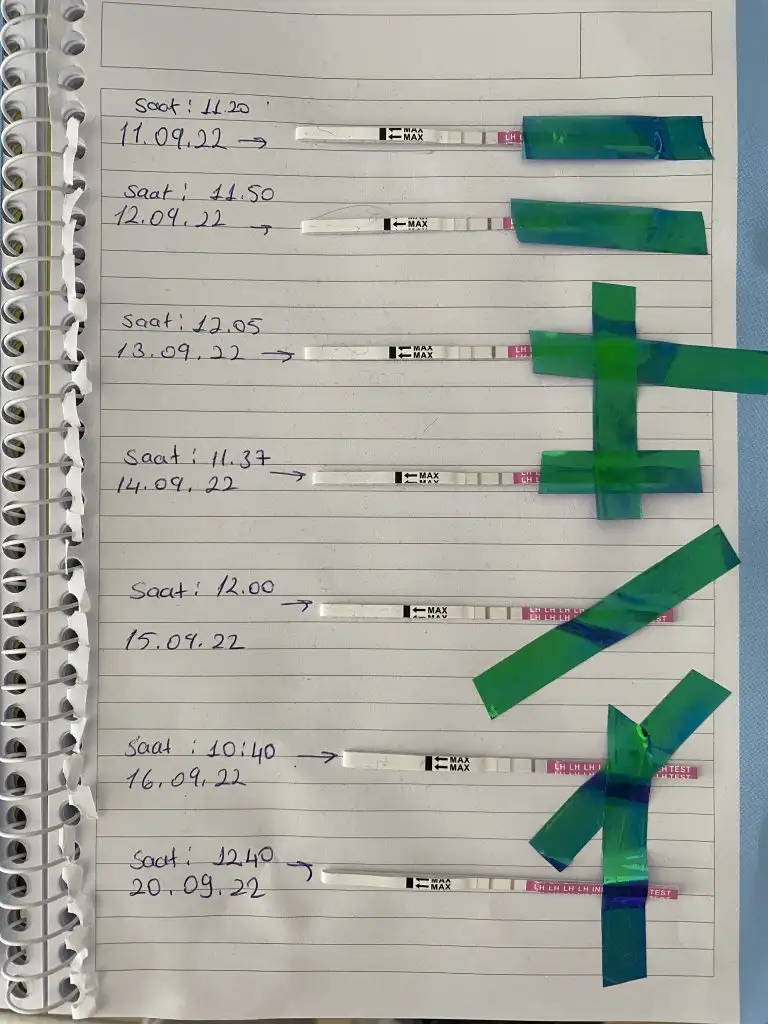 Saat: 11.20
11.09.22 →
MAX
MAX
LH
Saat: 11.50
12.09.22 →
MAX
Saat: 12.05
13.09.22 →
MAX
MAX
LH
Saat: 11.37
14.09.22 →
MAX
LH
Saat: 12.00 →
15.09.22
MAX
LH LH LH
LH LH LH
ST
Saat: 10:40 →
16.09.22
MAX
MAX
LH LH LH
LH TEST
Saat: 1240 →
20.09.22
MAX
MAX
LH LH LH LH
TEST